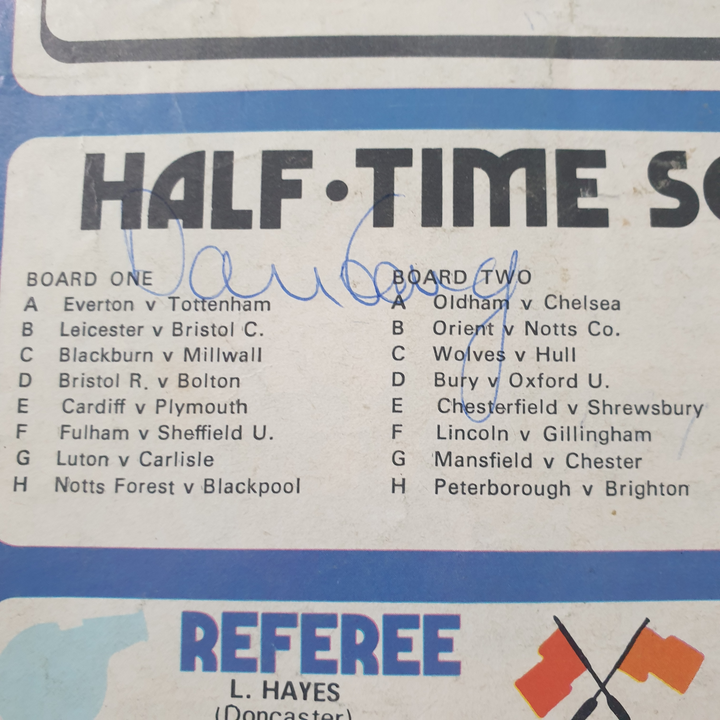 HALF·TIME
BOARD ONE
A Everton v Tottenham
B Leicester v Bristol C.
C Blackburn v Millwall
D Bristol R. v Bolton
E Cardiff v Plymouth
F Fulham v Sheffield U.
G Luton v Carlisle
H Notts Forest v Blackpool
BOARD TWO
A Oldham v Chelsea
B Orient v Notts Co.
C Wolves v Hull
D Bury v Oxford U.
E Chesterfield v Shrewsbury
F Lincoln v Gillingham
G Mansfield v Chester
H Peterborough v Brighton
REFEREE
L. HAYES
(Doncaster)